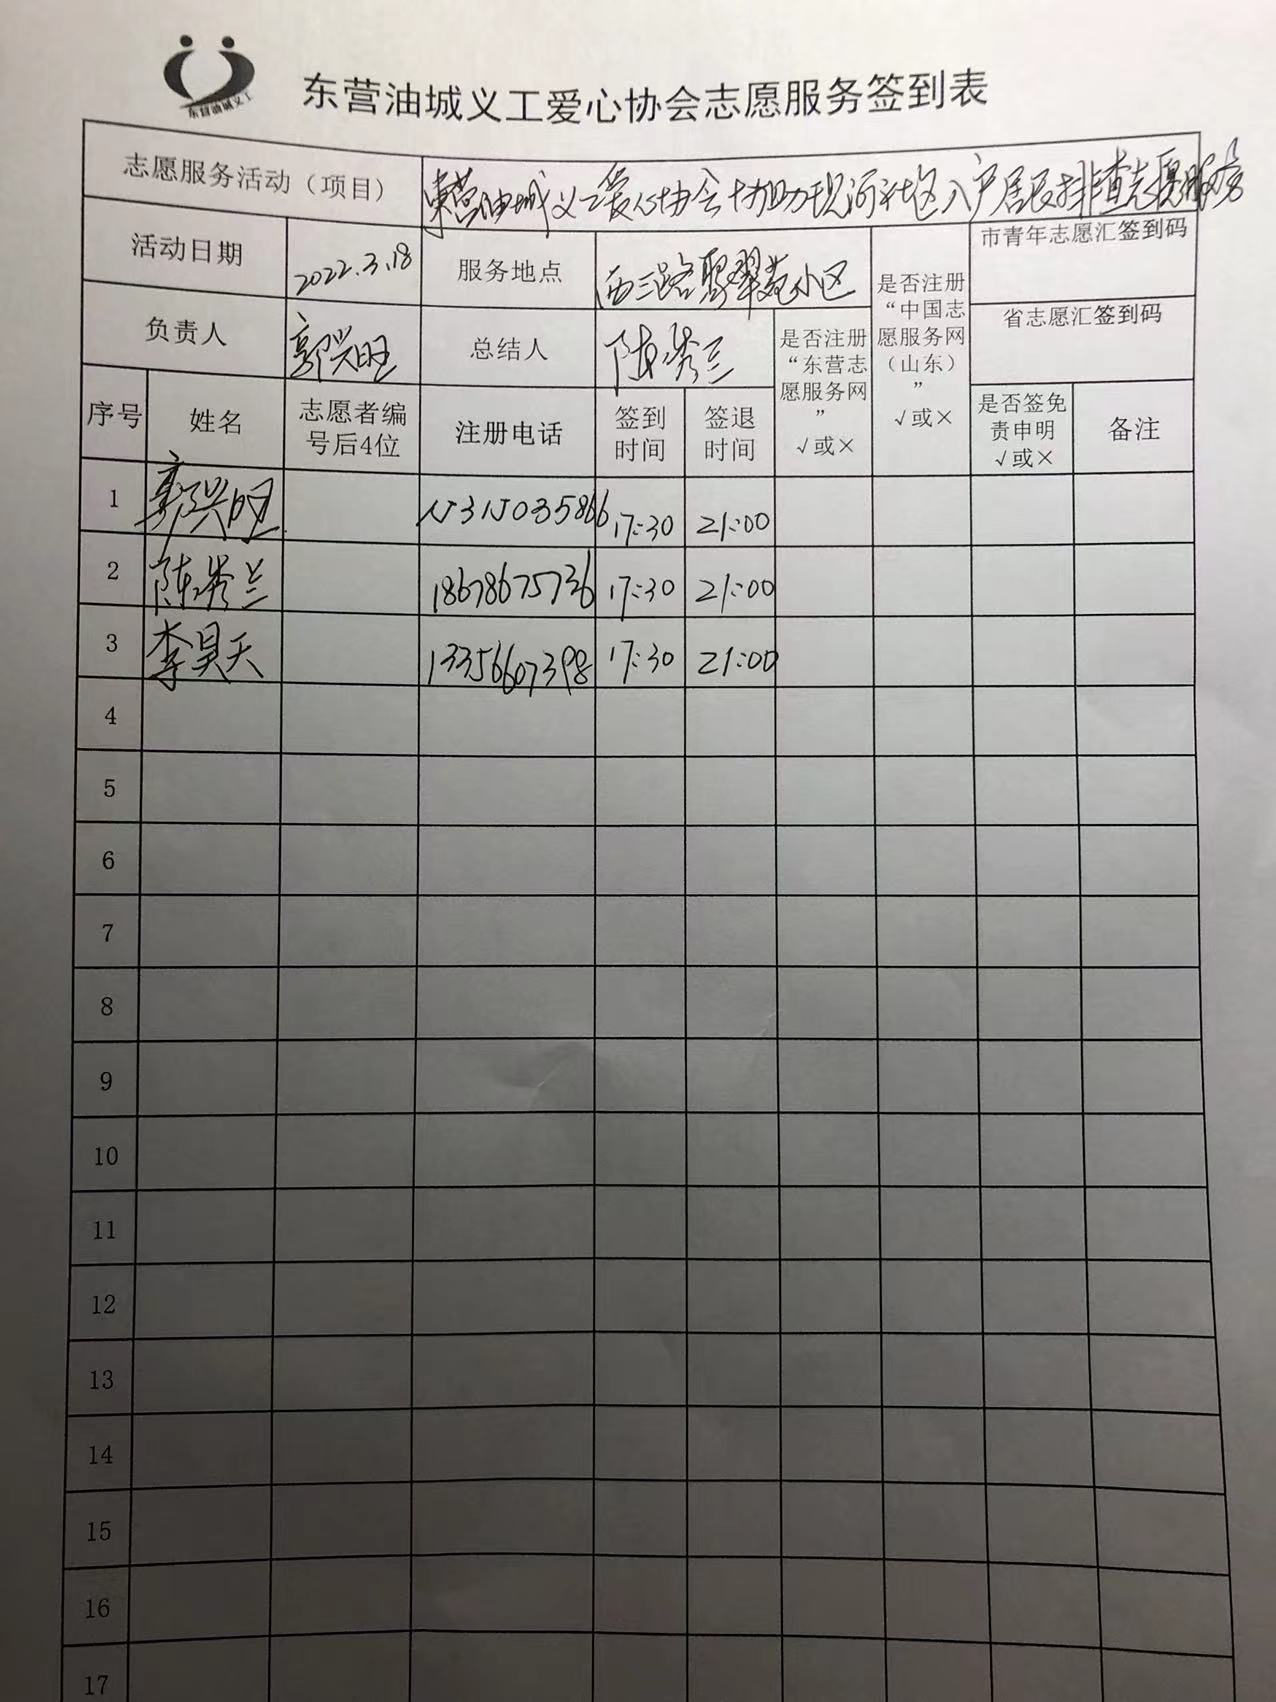 东营油城义工
东营油城义工爱心协会志愿服务签到表
志愿服务活动（项目） 东营油城义工爱心协会协助现河社区入户居民排查志愿服务
活动日期 2022.3.18 服务地点 西三路聚翠苑小区 是否注册“中国志愿服务网（山东）”√或× 市青年志愿汇签到码
省志愿汇签到码
负责人 郭兴旺 总结人 陈秀兰 是否注册“东营志愿服务网”√或×
序号 姓名 志愿者编号后4位 注册电话 签到时间 签退时间 是否签免责申明√或× 备注
1 郭兴旺 15315035866 17:30 21:00
2 陈秀兰 18678675736 17:30 21:00
3 李昊天 13356607398 17:30 21:00
4
5
6
7
8
9
10
11
12
13
14
15
16
17